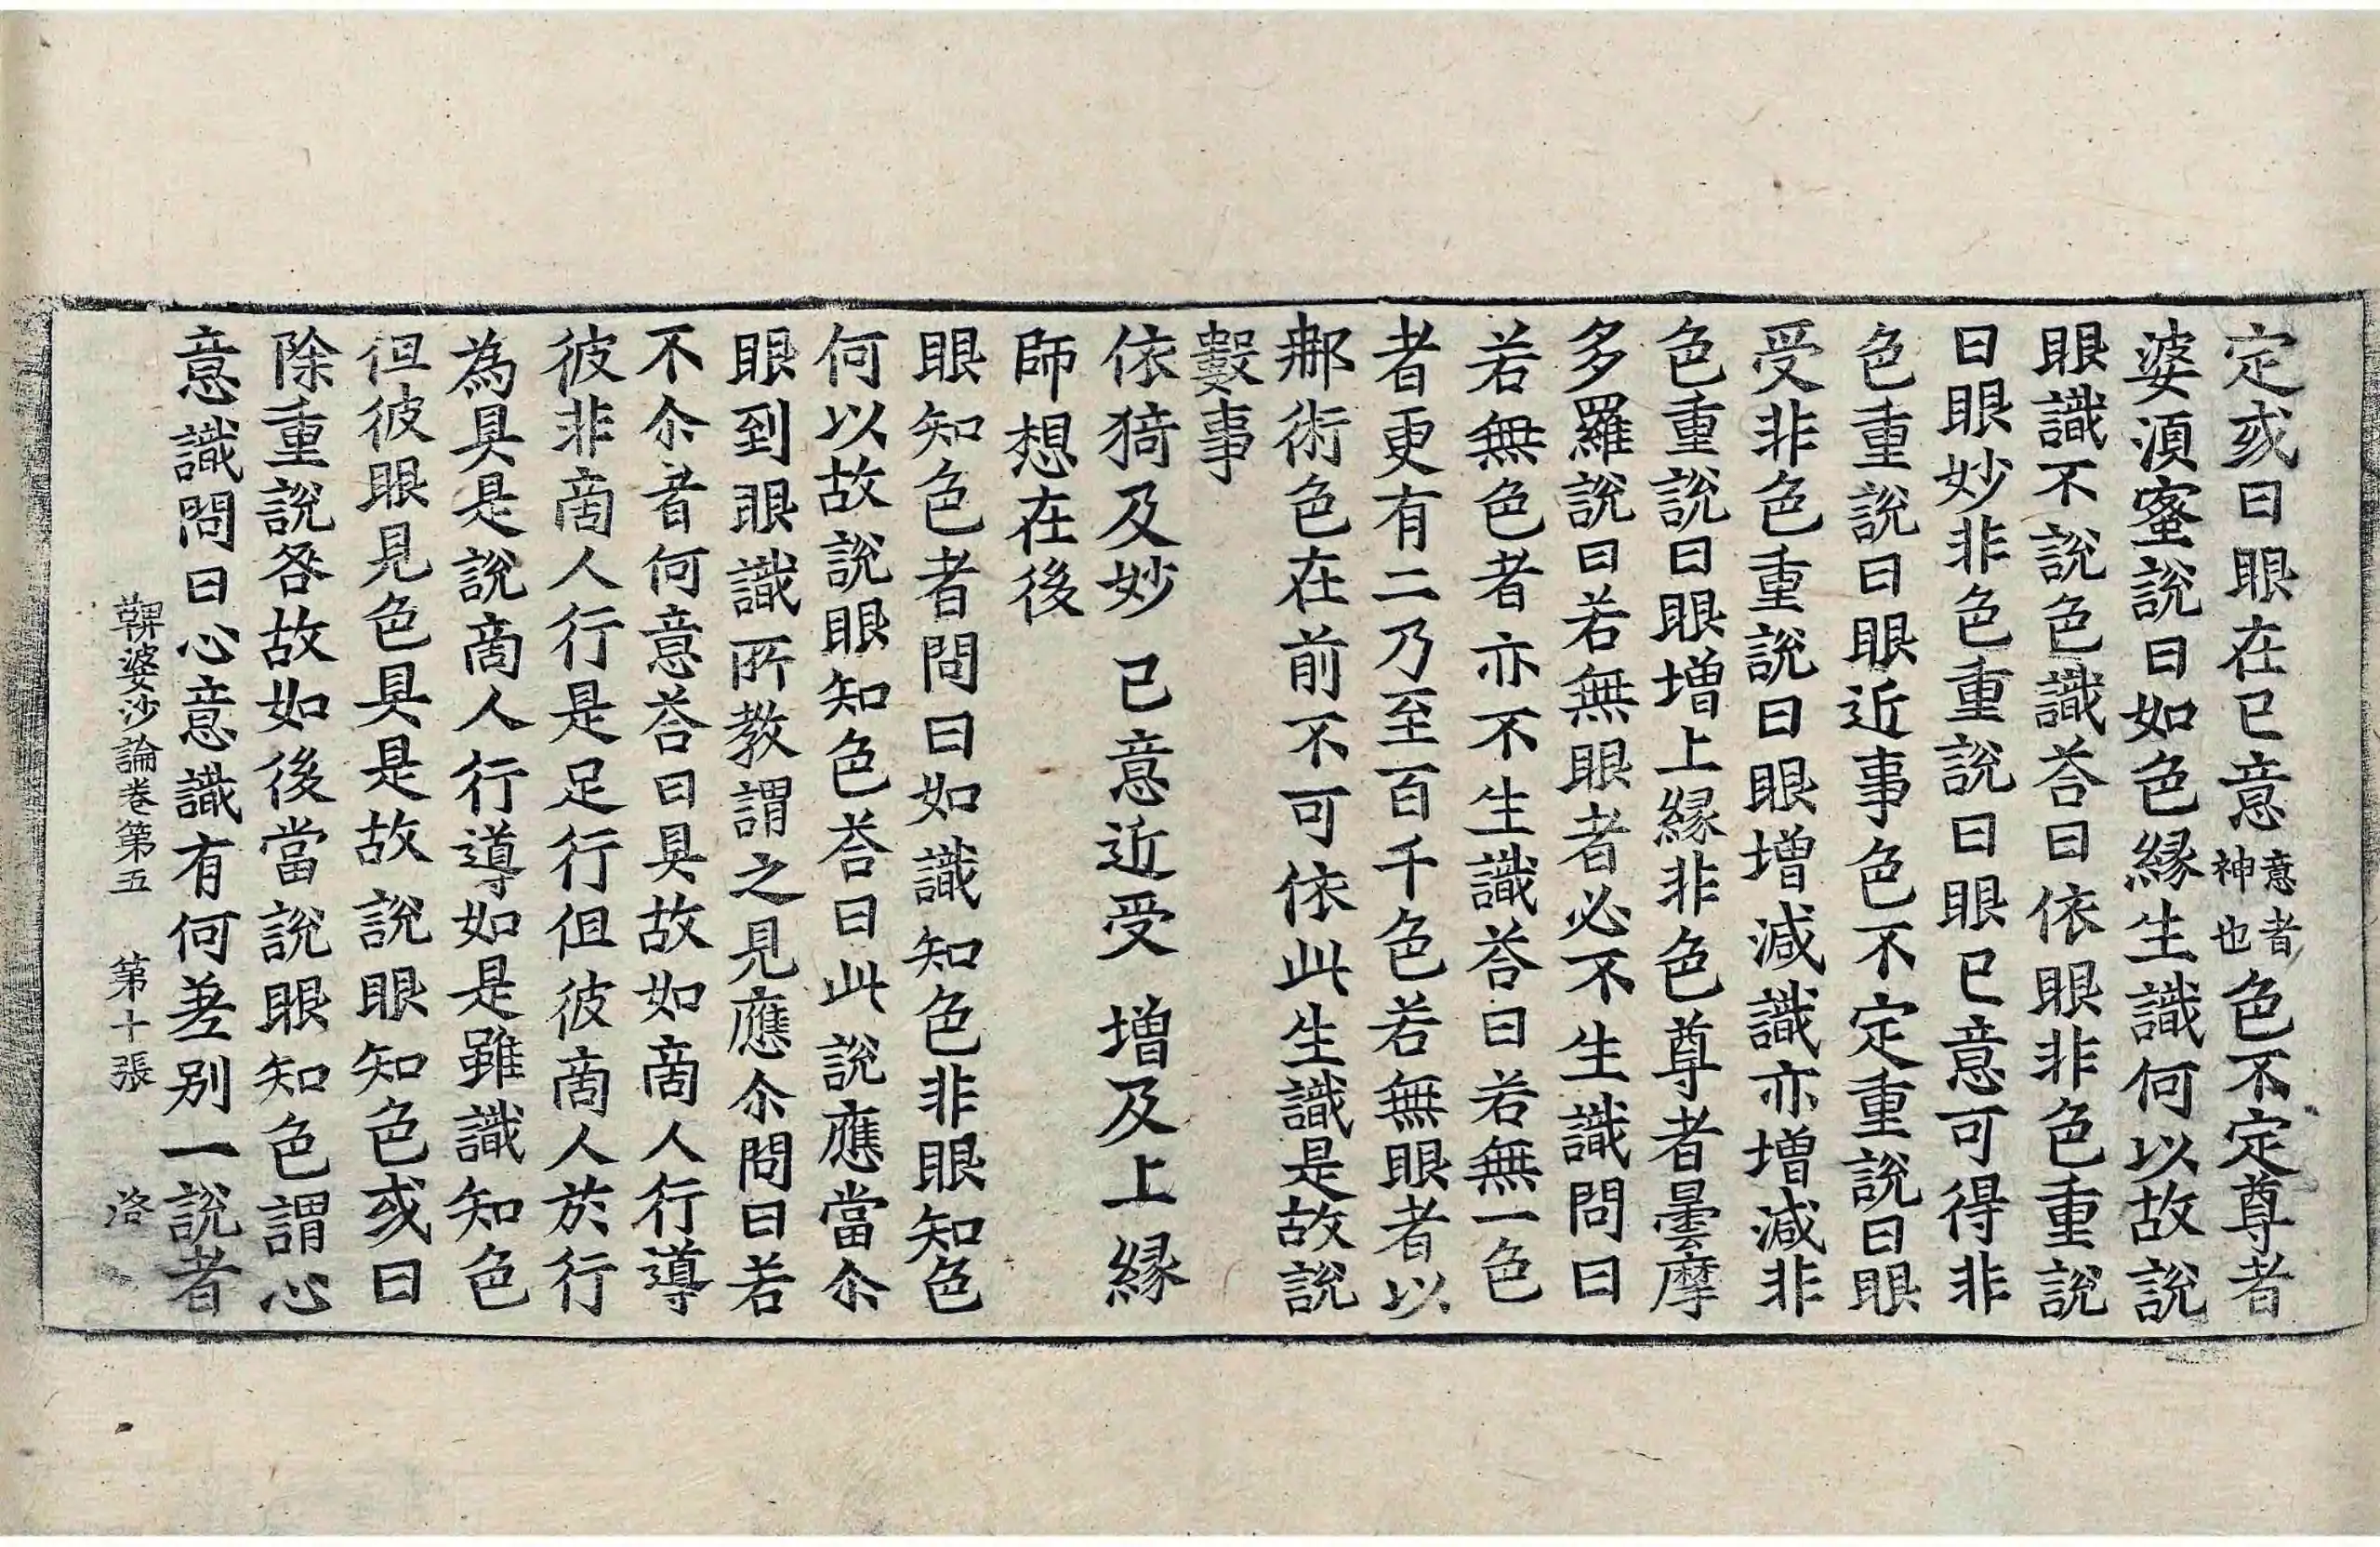 定或曰眼在已意意者神也色不定尊者
婆須蜜說曰如色緣生識何以故說
眼識不說色識荅曰依眼非色重說
曰眼妙非色重說曰眼已意可得非
色重說曰眼近事色不定重說曰眼
受非色重說曰眼增減識亦增減非
色重說曰眼增上緣非色尊者曇摩
多羅說曰若無眼者必不生識問曰
若無色者亦不生識荅曰若無一色
者更有二乃至百千色若無眼者以
邮術色在前不可依此生識是故說
數事
依猗及妙 已意近受 增及上緣
師想在後
眼知色者問曰如識知色非眼知色
何以故說眼知色荅曰此說應當尒
眼到眼識所教謂之見應尒問曰若
不尒者何意荅曰具故如啇人行導
彼非啇人行是足行但彼啇人於行
為具是說啇人行導如是雖識知色
但彼眼見色具是故說眼知色或曰
除重說咎故如後當說眼知色謂心
意識問曰心意識有何差别一說者
鞞婆沙論卷第五 第十張 洛